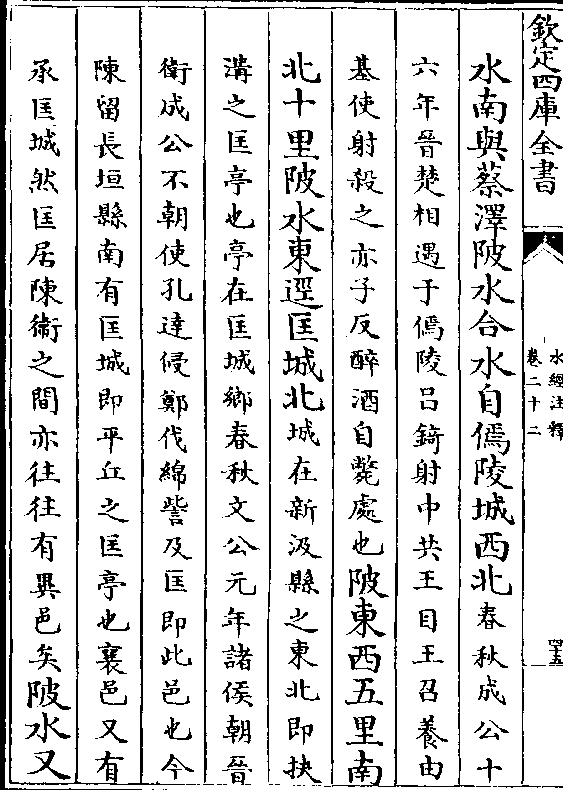 欽定四庫全書
水經注釋
卷二十二
四十五
水南與蔡澤陂水合水自傿陵城西北春秋成公十
六年晉楚相遇于傿陵呂錡射中共王目王召養由
基使射殺之亦子反醉酒自斃處也陂東西五里南
北十里陂水東逕匡城北城在新汲縣之東北即扶
溝之匡亭也亭在匡城鄉春秋文公元年諸侯朝晉
衛成公不朝使孔達侵鄭伐綿訾及匡即此邑也今
陳留長垣縣南有匡城即平丘之匡亭也襄邑又有
承匡城然匡居陳衛之間亦往往有異邑矣陂水又